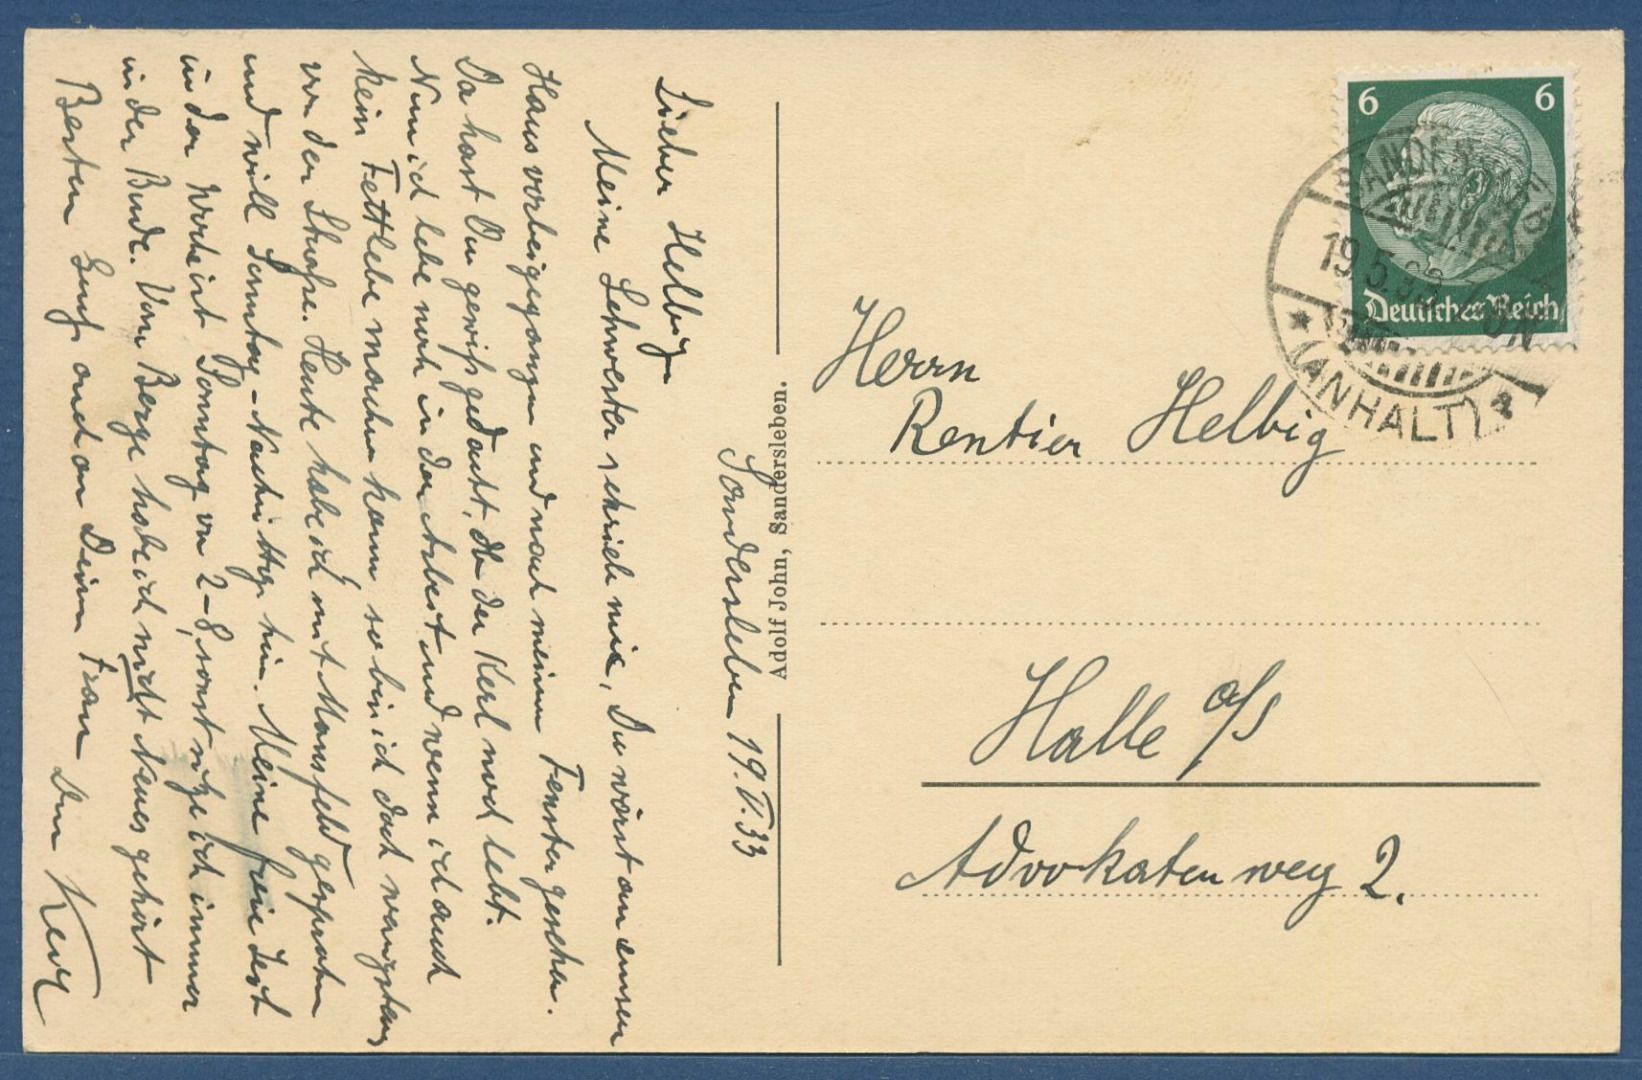 Sandersleben 19.V.33
Lieber Helbig
Meine Schwester schrieb mir, Du wärst an unserm
Haus vorbeigegangen und nach meinem Fenster gesehen.
Da hast Du gewiß gedacht, ob der Kerl noch lebt.
Nun ich lebe noch in der Arbeit und wenn ich auch
kein Fettlebe machen kann so bin ich doch wenigstens
von der Straße. Heute habe ich mit Mansfeld gesprochen
und will Sonntag-Nachmittag hin. Meine freie Zeit
in der ist Sonntag von 2-8, sonst sitze ich immer
in der Bude. Vom Berge habe ich nicht Neues gehört
Besten Gruß auch an Deine Frau Dein
Adolf John, Sandersleben.
6 6
Deutsches Reich
SANDERSLEBEN
19.5.33
* (ANHALT)
Herrn
Rentier Helbig
Halle a/S
Advokatenweg 2.